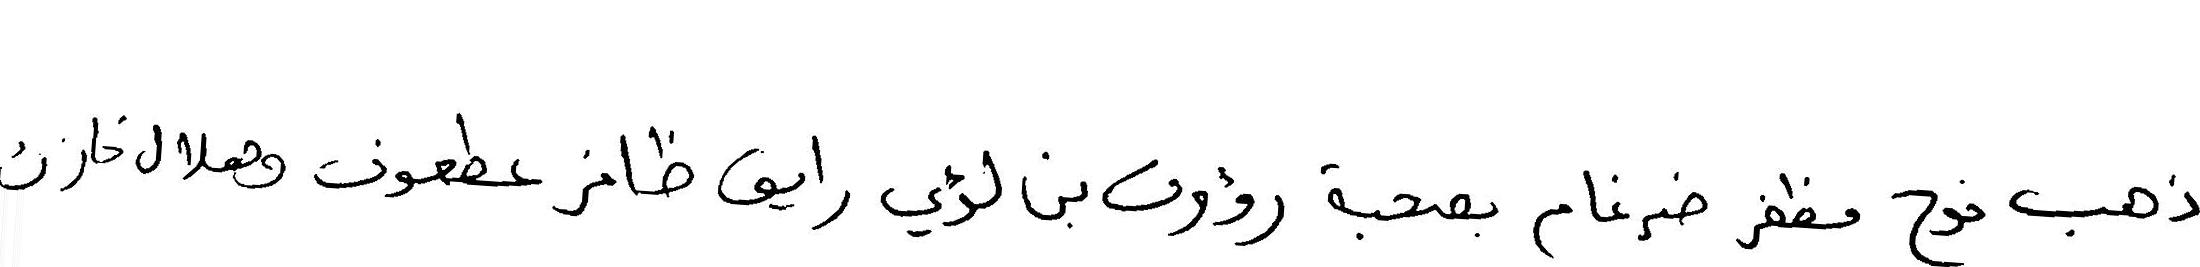 ذهب نوح مظفر ضرغام بصحبة رؤوف بن لؤي رايق ظافر عطعوط وهلال خازن